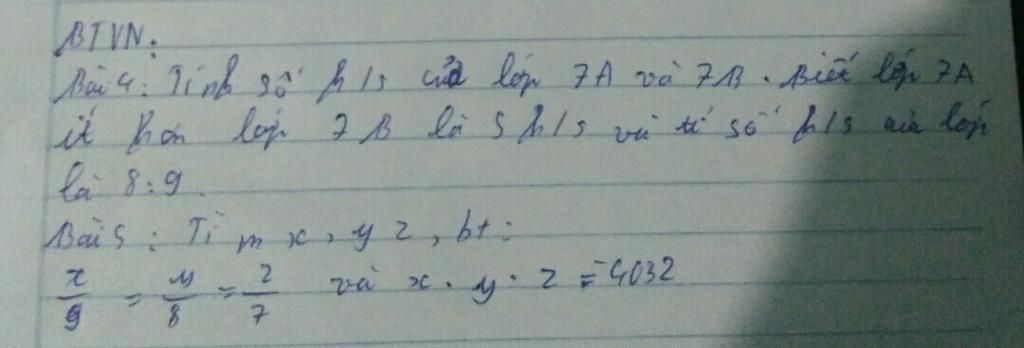 BTVN:
Bài 4: Tính số h/s của lớp 7A và 7B. Biết lớp 7A
ít hơn lớp 7B là 5 h/s và tỉ số h/s của lớp
là 8:9.
Bài 5: Tìm x, y z, bt:
x/9 = y/8 = z/7 và x . y . z = -4032